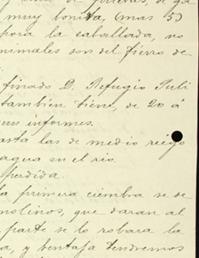 muy bonita, (mas 5)
para la caballada, no
nimales son del fierro de
finado D. Refugio Puli
tambien tiene, de 20 á
sus informes.
asta las de medio riego
agua en el rio.
perdida.
la primera ciembra se de
nolinos, que daran al
parte se lo robara la
a, y bentaja tendremos